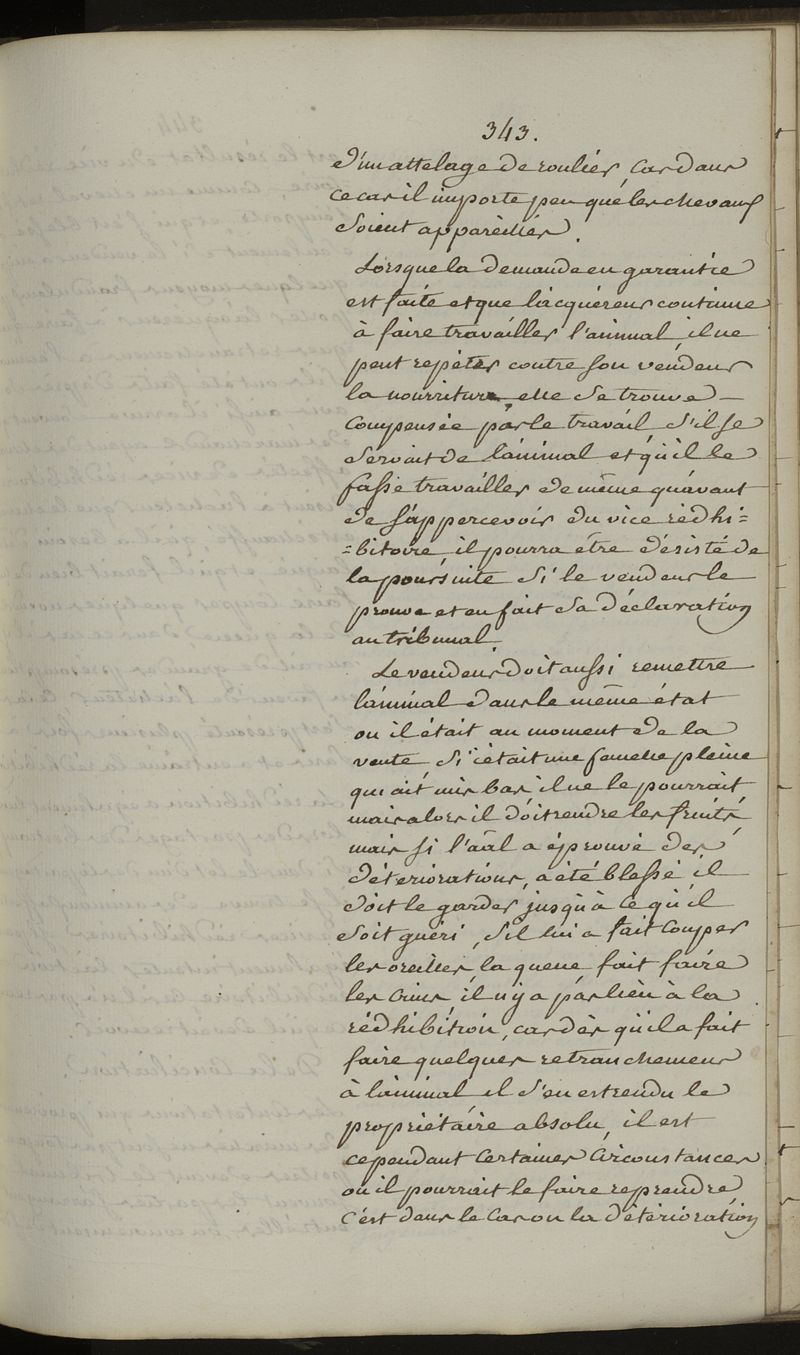 343.
d'un attelage de roulier, car dans
ce cas il importe peu que les chevaux
soient appareillés.
Lorsque la demande en garantie
est faite et que l'acquéreur continue
à faire travailler l'animal, il ne
peut repéter contre son vendeur
la nourriture, elle se trouve
compensée par le travail s'il se
servait de l'animal et qu'il le
fasse travailler de même qu'avant
de s'appercevoir du vice rédhi=
=bitoire il pourra être désisté de
la poursuite si le vendeur le
prouve et en fait sa déclaration
au tribunal.
Le vendeur doit aussi remettre
l'animal dans le même état
ou il était au moment de la
vente si c'était une femelle pleine
qui ait mis bas il ne le pourrait
mais alors il doit rendre les fruits
mais si l'aâl a éprouvé des
déteriorations, a été blessé il
doit le garder jusqu'à ce qu'il
soit guéri, s'il lui a fait couper
les oreilles, la queue fait faire
les crins, il n'y a pas lieu à la
rédhibition, car dès qu'il a fait
faire quelques retranchemens
à l'animal il s'en est rendu le
propriétaire absolu, il est
cependant certaines circonstances
ou il pourrait le faire reprendre
c'est dans le cas ou la détérioration